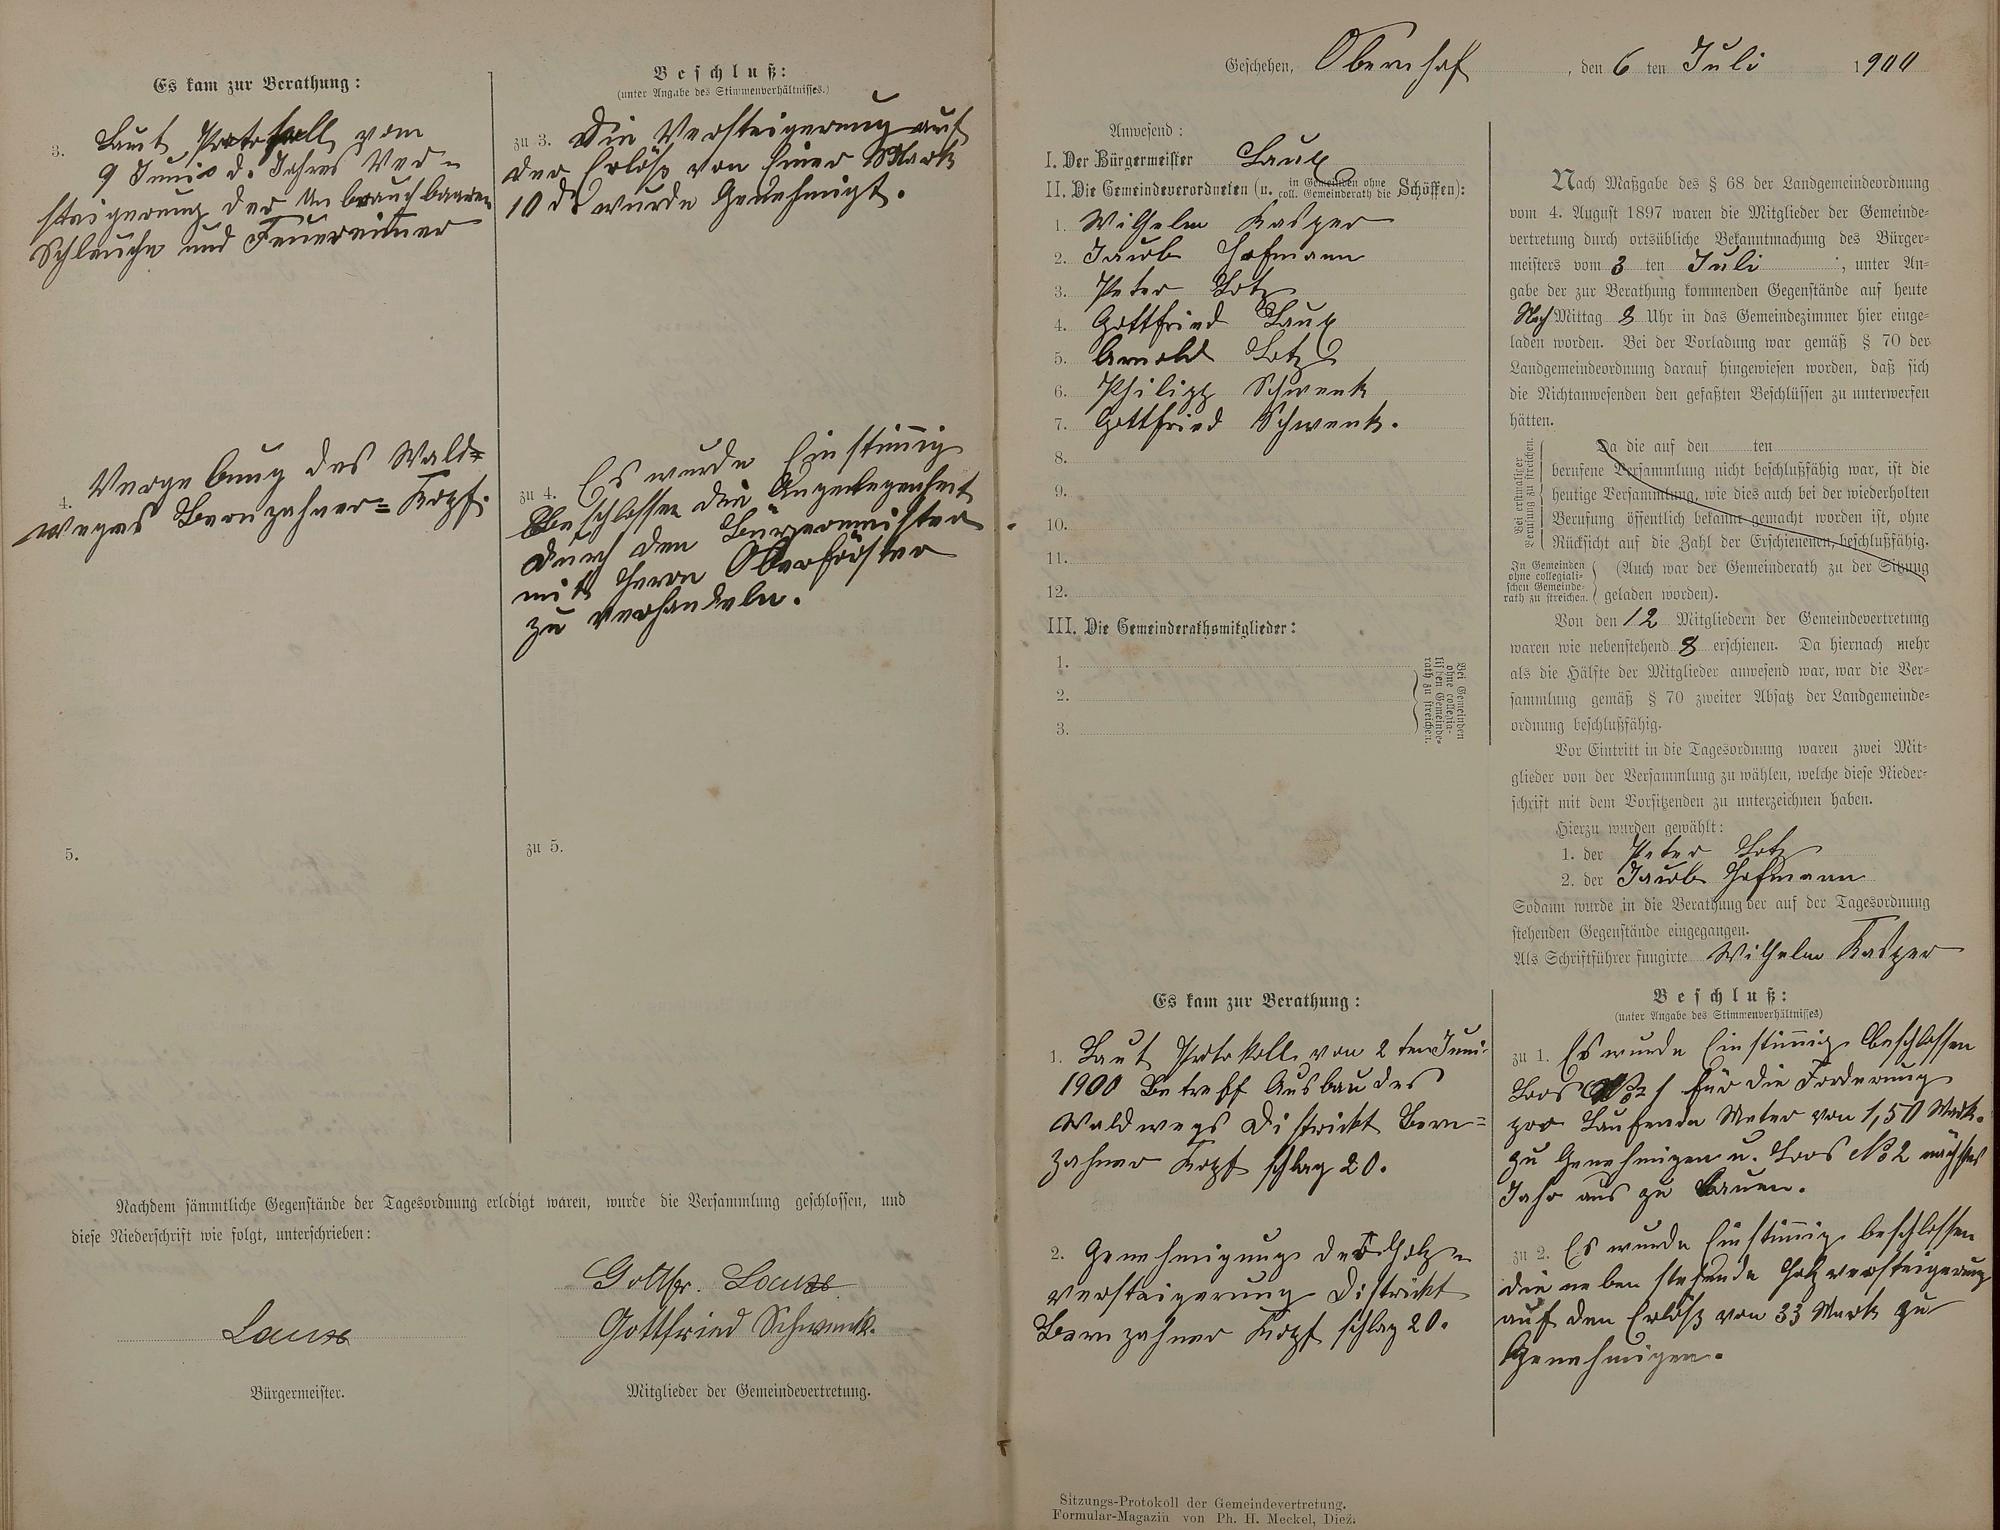 Es kam zur Berathung:
3. Laut Protokoll vom
9 Juni d. Jahres Ver-
steigerung der Unbrauchbaaren
Schläuche und Feuereimer
4. Vergebung des Wald=
weges Bernzahner=Kopf.
5.
Beschluß:
(unter Angabe des Stimmenverhältnisses.)
zu 3. Die Versteigerung auf
der Erlöß von Einer Mark
10 d wurde Genehmigt.
zu 4. Es wurde Einstimmig
Beschlossen die Angelegenheit
durch den Bürgermeister
mit Herrn Oberförster
zu verhandeln.
zu 5.
Nachdem sämmtliche Gegenstände der Tagesordnung erledigt waren, wurde die Versammlung geschlossen, und
diese Niederschrift wie folgt, unterschrieben:
Gottfr. Laux
Laux
Gottfried Schwenk.
Bürgermeister.
Mitglieder der Gemeindevertretung.
Geschehen, Obernhof, den 6 ten Juli 1900
Anwesend:
I. Der Bürgermeister Laux
II. Die Gemeindeverordneten (u. in Gemeinden ohne coll. Gemeinderath die Schöffen):
1. Wilhelm Kasper
2. Jacob Hofmann
3. Peter Lotz
4. Gottfried Laux
5. Arnold Lotz
6. Philipp Schwenk
7. Gottfried Schwenk.
8.
9.
10.
11.
12.
III. Die Gemeinderathsmitglieder:
1.
2.
3.
Bei Gemeinden
ohne collegia-
lischen Gemeinde-
rath zu streichen.
Nach Maßgabe des § 68 der Landgemeindeordnung
vom 4. August 1897 waren die Mitglieder der Gemeinde-
vertretung durch ortsübliche Bekanntmachung des Bürger-
meisters vom 3 ten Juli, unter An-
gabe der zur Berathung kommenden Gegenstände auf heute
Nach Mittag 8 Uhr in das Gemeindezimmer hier einge-
laden worden. Bei der Vorladung war gemäß § 70 der
Landgemeindeordnung darauf hingewiesen worden, daß sich
die Nichtanwesenden den gefaßten Beschlüssen zu unterwerfen
hätten.
Bei erstmaliger
Berufung zu streichen.
Da die auf den ten
berufene Versammlung nicht beschlußfähig war, ist die
heutige Versammlung, wie dies auch bei der wiederholten
Berufung öffentlich bekannt gemacht worden ist, ohne
Rücksicht auf die Zahl der Erschienenen, beschlußfähig.
In Gemeinden
ohne collegiali-
schen Gemeinde-
rath zu streichen.
(Auch war der Gemeinderath zu der Sitzung
geladen worden).
Von den 12 Mitgliedern der Gemeindevertretung
waren wie nebenstehend 8 erschienen. Da hiernach mehr
als die Hälfte der Mitglieder anwesend war, war die Ver-
sammlung gemäß § 70 zweiter Absatz der Landgemeinde-
ordnung beschlußfähig.
Vor Eintritt in die Tagesordnung waren zwei Mit-
glieder von der Versammlung zu wählen, welche diese Nieder-
schrift mit dem Vorsitzenden zu unterzeichnen haben.
Hierzu wurden gewählt:
1. der Peter Lotz
2. der Jacob Hofmann
Sodann wurde in die Berathung der auf der Tagesordnung
stehenden Gegenstände eingegangen.
Als Schriftführer fungirte Wilhelm Kasper
Es kam zur Berathung:
1. Laut Protokoll von 2 ten Juni
1900 Betreff Ausbau des
Waldwegs Districkt Bern=
zahner Kopf schlag 20.
2. Genehmigung der Holz=
versteigerung Districkt
Bernzahner Kopf schlag 20.
Beschluß:
(unter Angabe des Stimmenverhältnisses)
zu 1. Es wurde Einstimmig Beschlossen
Loos No 1 für die Forderung
pro Laufende Meter von 1,50 Mark
zu Genehmigen u. Loos No 2 nächstes
Jahr aus zu bauen.
zu 2. Es wurde Einstimmig beschlossen
die neben stehende Holzversteigerung
auf den Erlöß von 33 Mark zu
Genehmigen.
Sitzungs-Protokoll der Gemeindevertretung.
Formular-Magazin von Ph. H. Meckel, Diez.